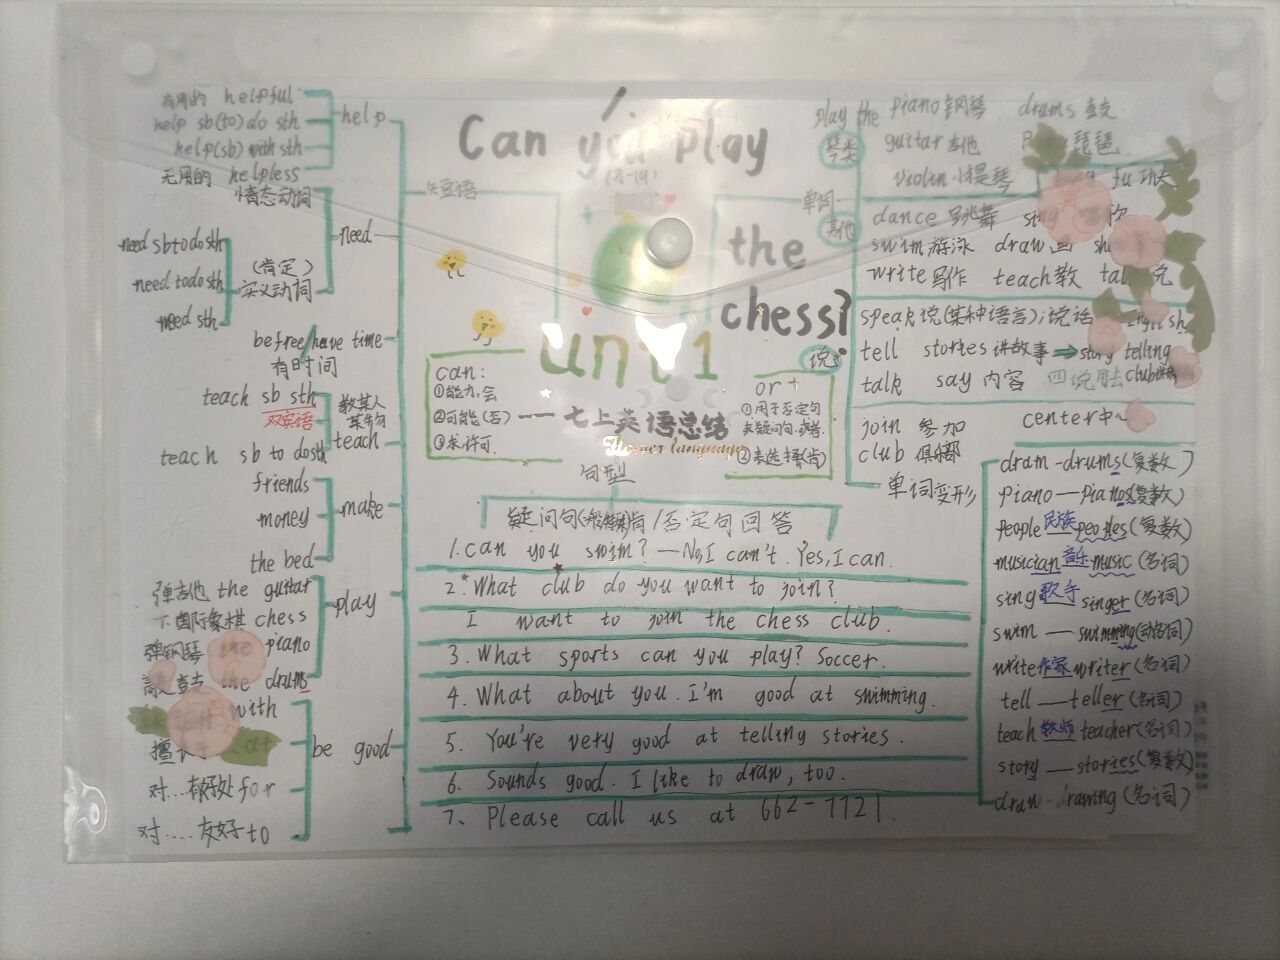 Can you play
the
chess?
unit1
七上英语总结
有用的 helpful
help sb(to)do sth
help(sb) with sth
无用的 helpless
help
情态动词
need sb to do sth
need to do sth
need sth
(肯定)
实义动词
need
be free/have time
有时间
teach sb sth
双宾语
教某人
某物
teach sb to do sth
teach
friends
money
the bed
make
弹吉他 the guitar
下国际象棋 chess
弹钢琴 piano
the drums
play
with
at
对...有好处 for
对....友好 to
be good
can:
①能力,会
②可能(否)
③求许可.
or
①用于否定句
②表选择(肯)
句型
疑问句 肯/否定句回答
1.Can you swim? —No,I can't. Yes,I can.
2.What club do you want to join?
I want to join the chess club.
3.What sports can you play? Soccer.
4.What about you. I'm good at swimming.
5. You're very good at telling stories.
6. Sounds good. I like to draw, too.
7. Please call us at 662-7721.
单词
play the piano 钢琴 drums 鼓
琴类
guitar 吉他 琵琶.
violin 小提琴 fu 功夫
其他
dance 跳舞 sing
swim 游泳 draw 画
write 写作 teach 教
说
speak 说(某种语言);说话
tell stories 讲故事 ⇒ story telling
talk say 内容 四说用法 club
join 参加
club 俱乐部
center 中~
单词变形
dram - drums(复数)
piano — pianos(复数)
people 民族 peoples(复数)
musician 音乐 music (名词)
sing 歌手 singer (名词)
swim — swimming(动名词)
write 作家 writer (名词)
tell — teller (名词)
teach 教师 teacher(名词)
story — stories (复数)
draw - drawing (名词)